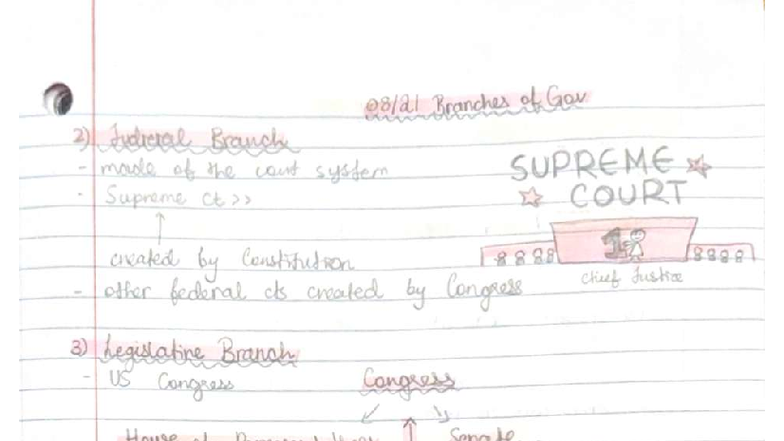 08/21 Branches of Gov
2) Judicial Branch
- made of the court system
- Supreme ct >>
SUPREME
COURT
1
created by Constitution
Chief Justice
- other federal cts created by Congress
3) Legislative Branch
- US Congress
Congress
House of Representatives
Senate